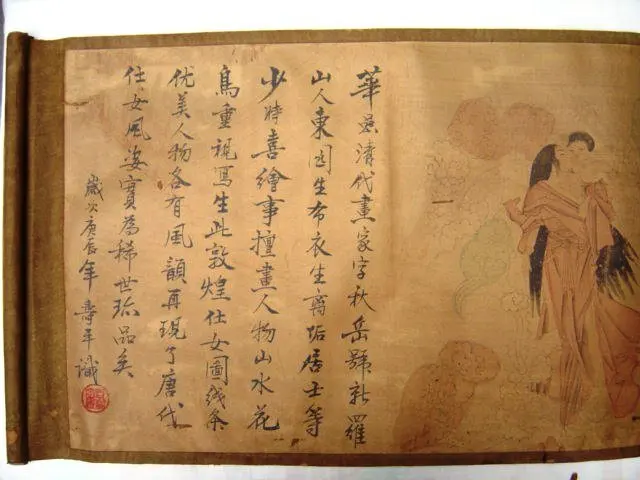 華嵒清代畫家字秋岳號新羅
山人東园生布衣生離垢居士等
少時喜繪事擅畫人物山水花
鳥重視寫生此敦煌仕女圖线条
优美人物各有風韻再現了唐代
仕女風姿實為稀世珎品矣
歲次庚辰年壽平識